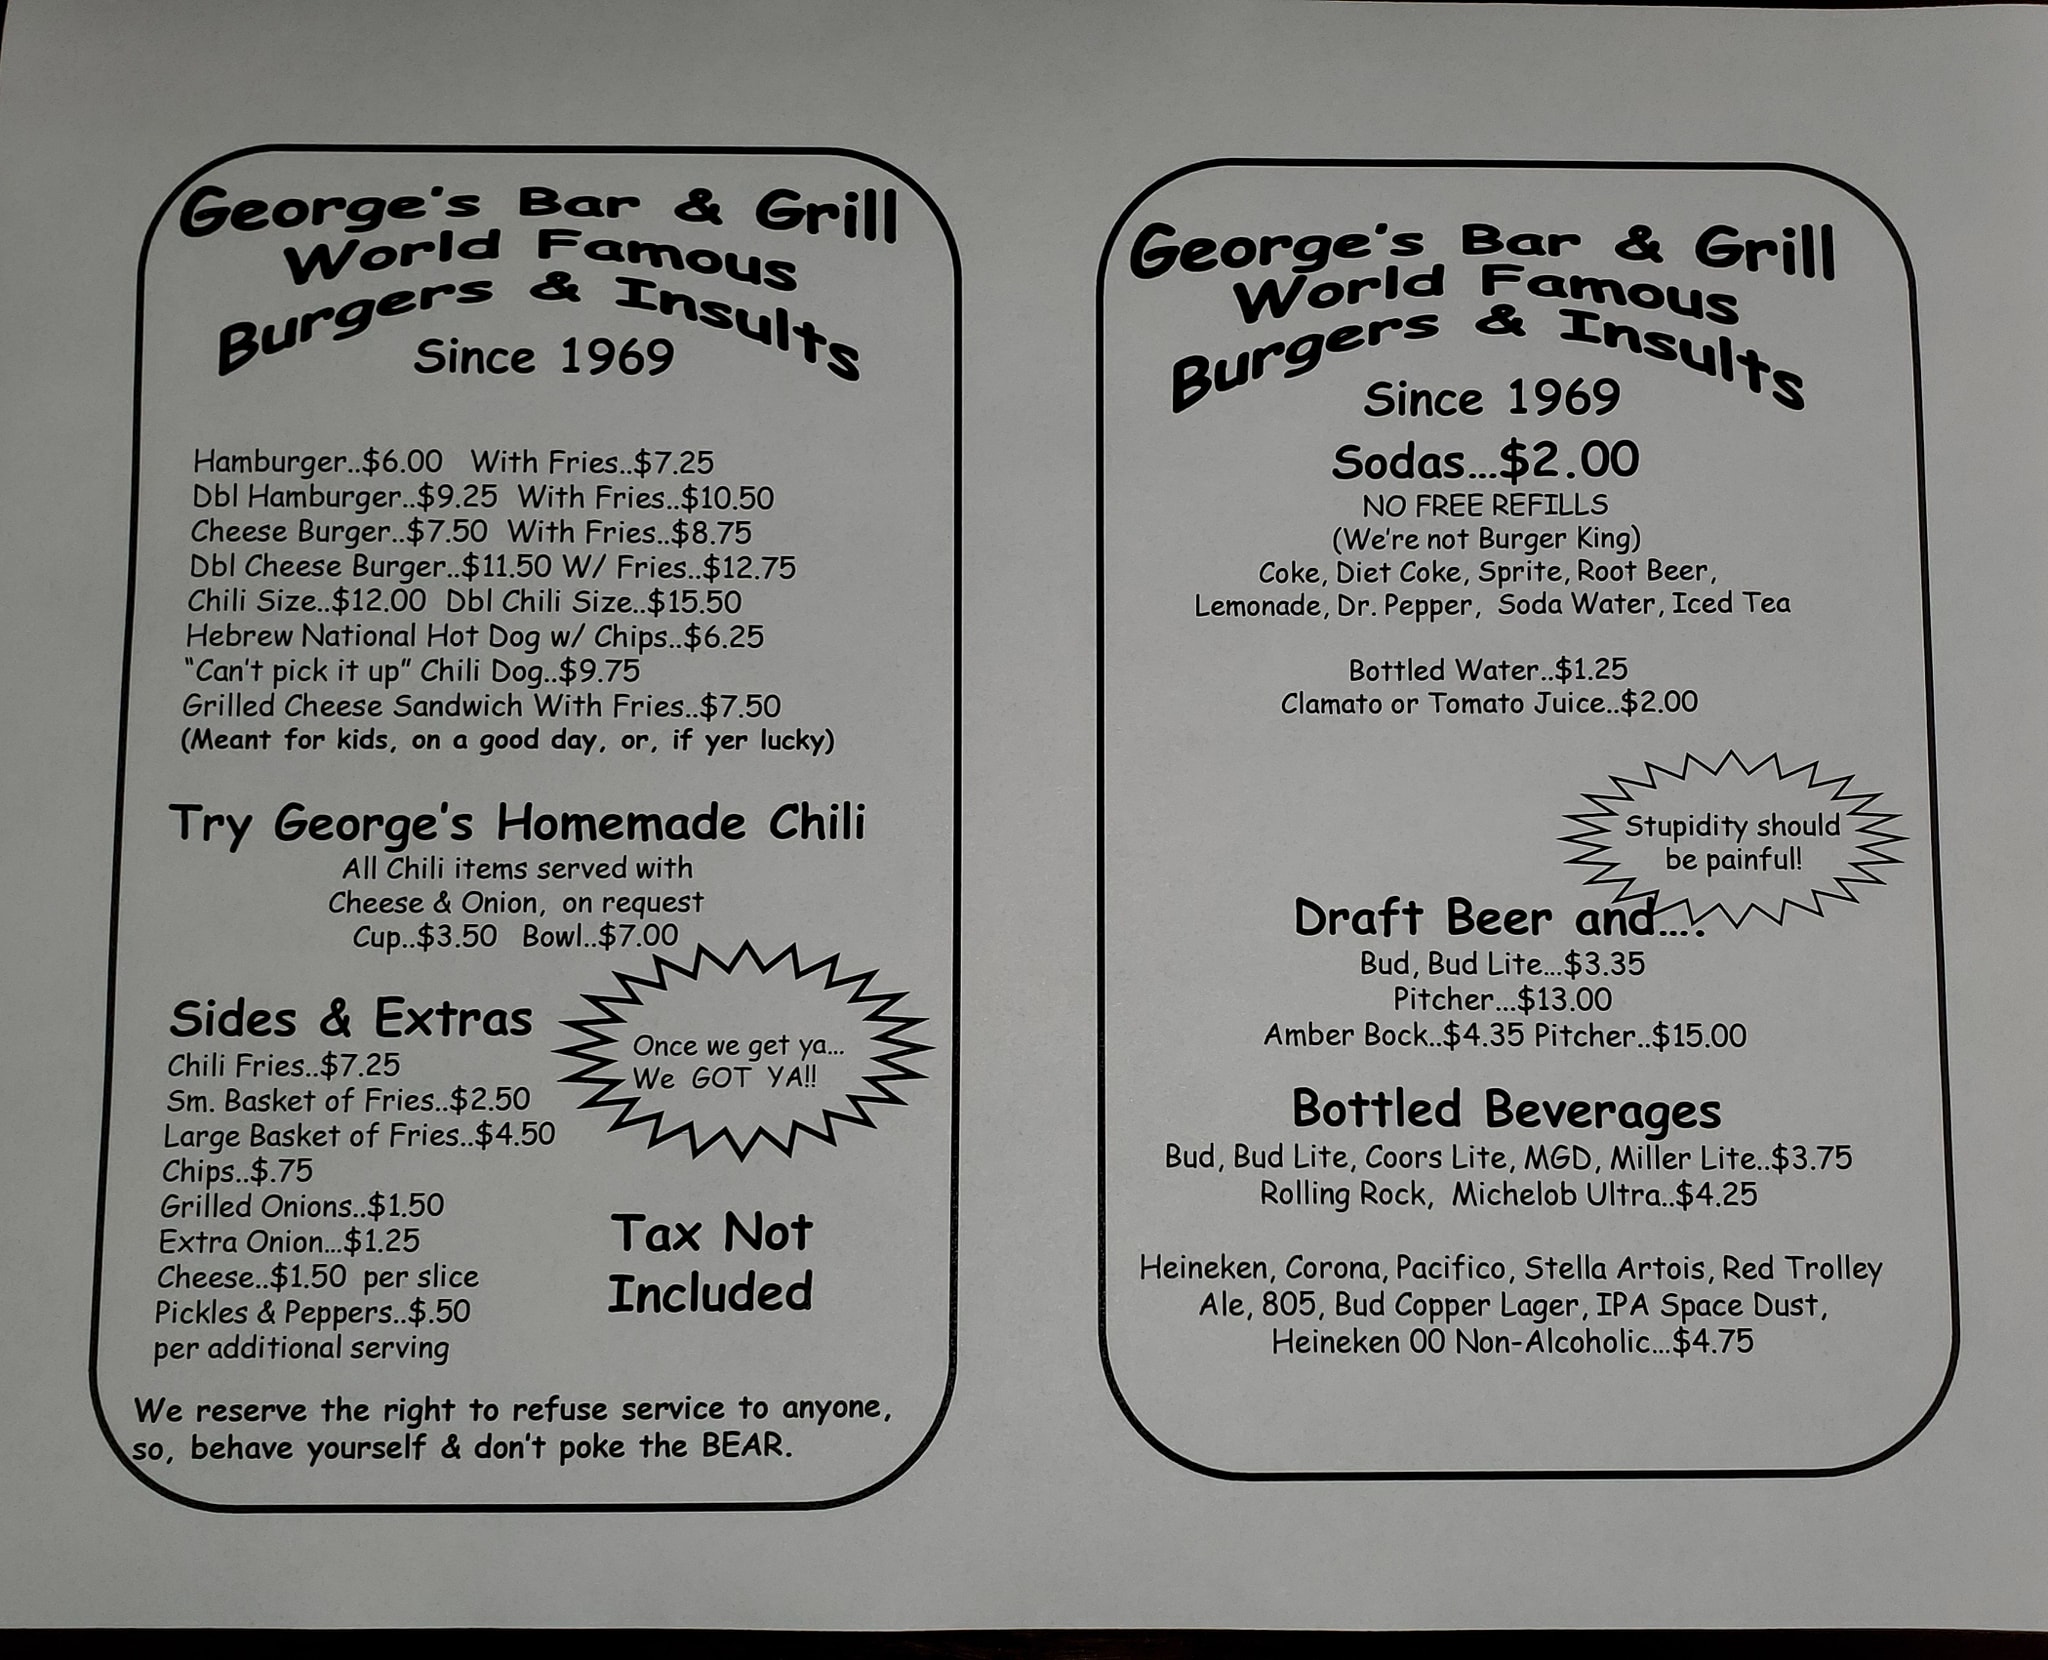 George's Bar & Grill
World Famous
Burgers & Insults
Since 1969
Hamburger..$6.00 With Fries..$7.25
Dbl Hamburger..$9.25 With Fries..$10.50
Cheese Burger..$7.50 With Fries..$8.75
Dbl Cheese Burger..$11.50 W/ Fries..$12.75
Chili Size..$12.00 Dbl Chili Size..$15.50
Hebrew National Hot Dog w/ Chips..$6.25
"Can't pick it up" Chili Dog..$9.75
Grilled Cheese Sandwich With Fries..$7.50
(Meant for kids, on a good day, or, if yer lucky)
Try George's Homemade Chili
All Chili items served with
Cheese & Onion, on request
Cup..$3.50 Bowl..$7.00
Sides & Extras
Chili Fries..$7.25
Sm. Basket of Fries..$2.50
Large Basket of Fries..$4.50
Chips..$.75
Grilled Onions..$1.50
Extra Onion...$1.25
Cheese..$1.50 per slice
Pickles & Peppers..$.50
per additional serving
Once we get ya...
We GOT YA!!
Tax Not
Included
We reserve the right to refuse service to anyone,
so, behave yourself & don't poke the BEAR.
George's Bar & Grill
World Famous
Burgers & Insults
Since 1969
Sodas...$2.00
NO FREE REFILLS
(We're not Burger King)
Coke, Diet Coke, Sprite, Root Beer,
Lemonade, Dr. Pepper, Soda Water, Iced Tea
Bottled Water..$1.25
Clamato or Tomato Juice..$2.00
Stupidity should
be painful!
Draft Beer and....
Bud, Bud Lite...$3.35
Pitcher...$13.00
Amber Bock..$4.35 Pitcher..$15.00
Bottled Beverages
Bud, Bud Lite, Coors Lite, MGD, Miller Lite..$3.75
Rolling Rock, Michelob Ultra..$4.25
Heineken, Corona, Pacifico, Stella Artois, Red Trolley
Ale, 805, Bud Copper Lager, IPA Space Dust,
Heineken 00 Non-Alcoholic...$4.75